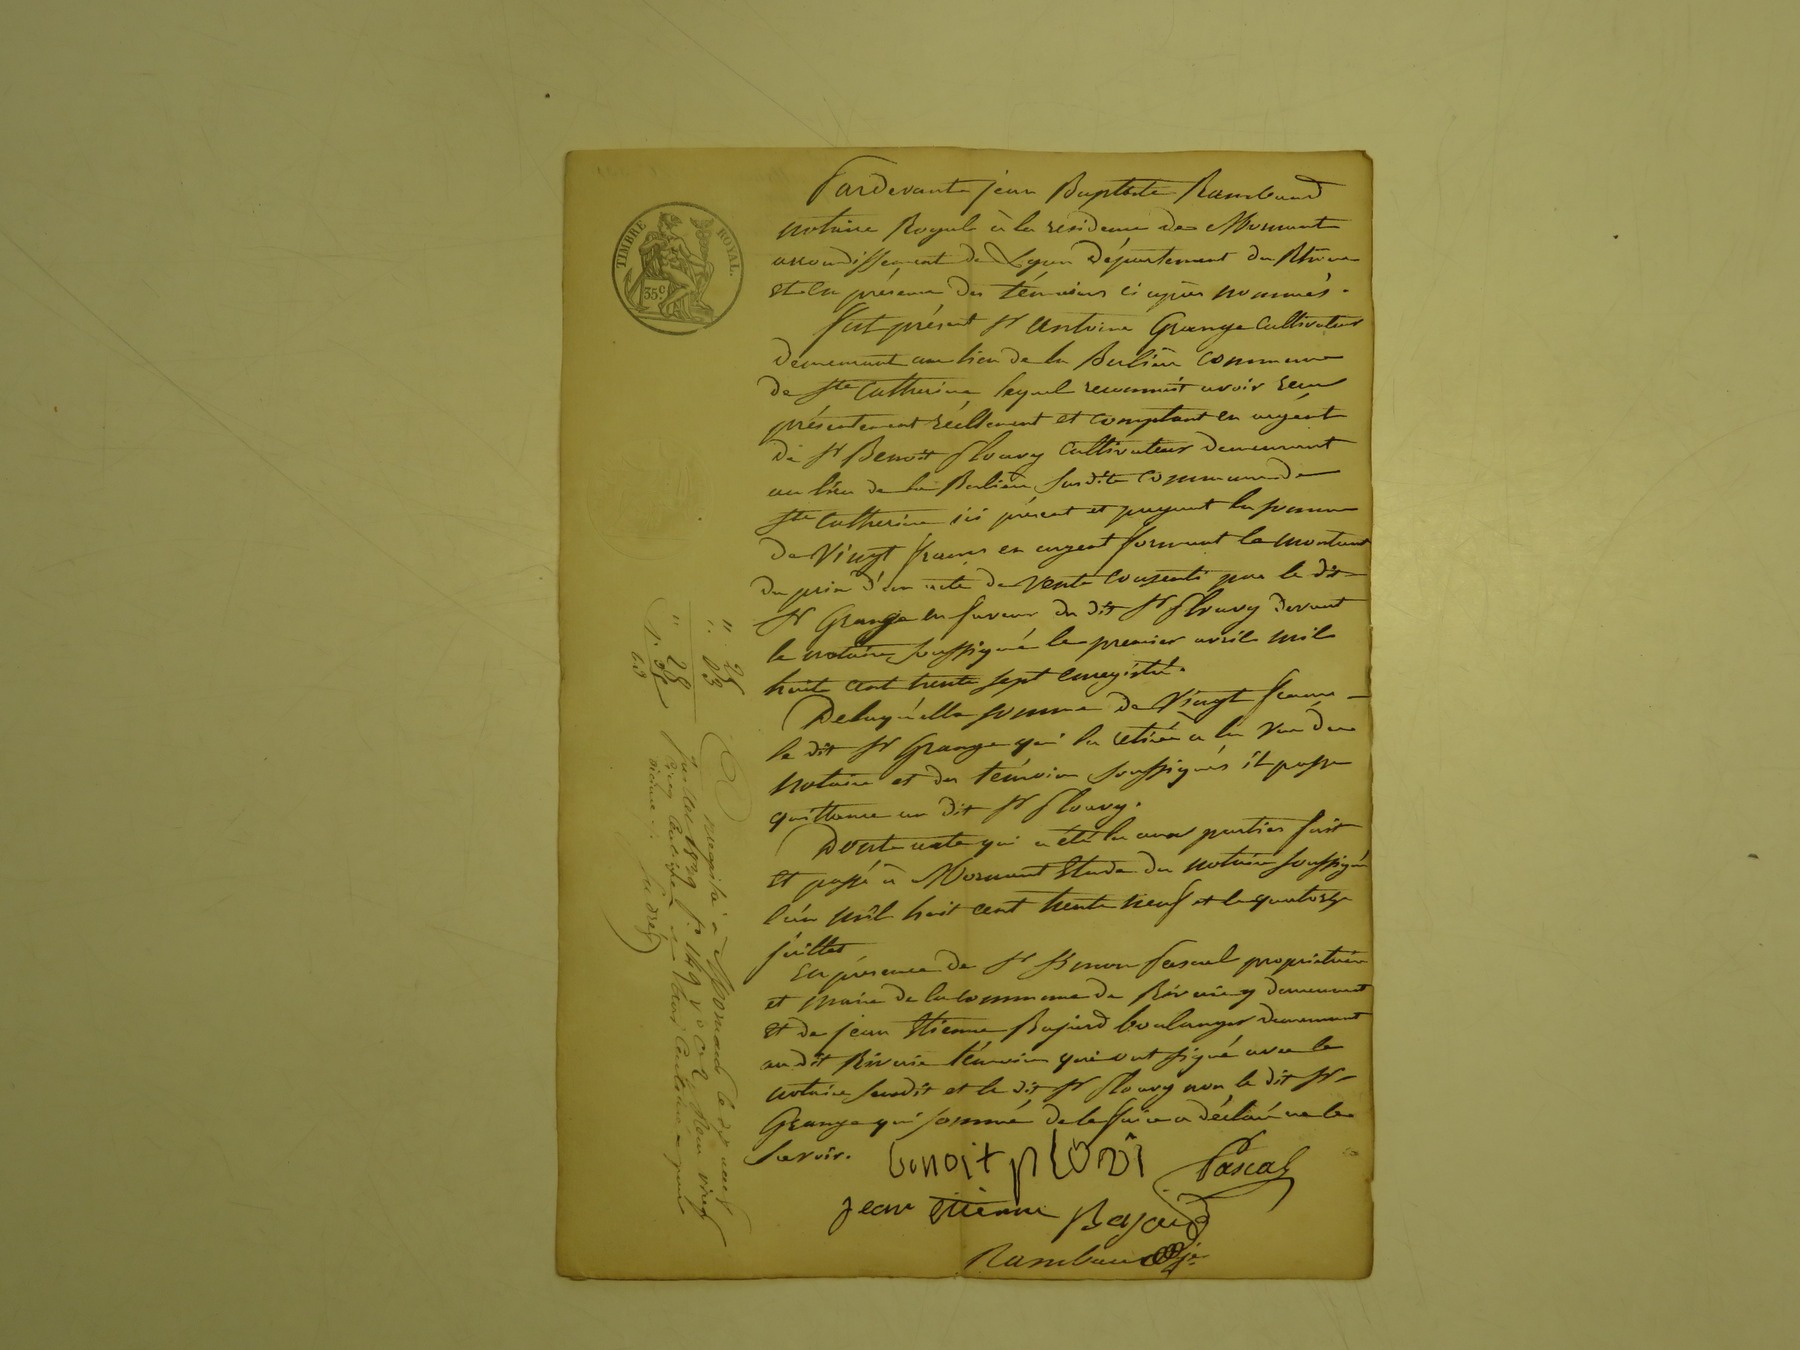 TIMBRE ROYAL.
35 c.
Pardevant jean Baptiste Rambaud
notaire Royal à la résidence de Mornant
arrondissement de Lyon Département du Rhône
et en présence des témoins ci après nommés.
fut présent Sr Antoine Grange Cultivateur
demeurant au lieu de la Bulière commune
de Ste Catherine lequel reconnait avoir recu
présentement réellement et comptant en argent
de Sr Benoît Plouvy Cultivateur demeurant
au lieu de la Bulière susdite commune de
Ste Catherine ici présent et payant la somme
de Vingt francs en argent formant le montant
du prix d'un acte de vente consenti par le dit
Sr Grange en faveur du dit Sr Plouvy devant
le notaire soussigné le premier avril mil
huit cent trente sept enregistré.
De laquelle somme de Vingt francs
le dit Sr Grange qui la retirée à la vue du
notaire et des témoins soussignés il passe
quittance au dit Sr Plouvy.
Dont acte qui a été lu aux parties fait
et passé à Mornant Etude du notaire soussigné
l'an mil huit cent trente neuf et le quatorze
juillet
En présence de Sr Simon Pascal propriétaire
et maire de la commune de Riverie y demeurant
et de jean Etienne Bajard boulanger demeurant
au dit Riverie témoins qui ont signé avec le
notaire susdit et le dit Sr Plouvy non le dit Sr
Grange qui sommé de le faire a déclaré ne le
savoir.
benoit plovi Pascal
jean Etienne Bajard
Rambaud
Enregistré à Mornant le dix neuf
juillet 1839 fo 149 Vo C 2 Reçu vingt
cinq centimes et deux centimes pour
décime.
" 25
" 03
" 28